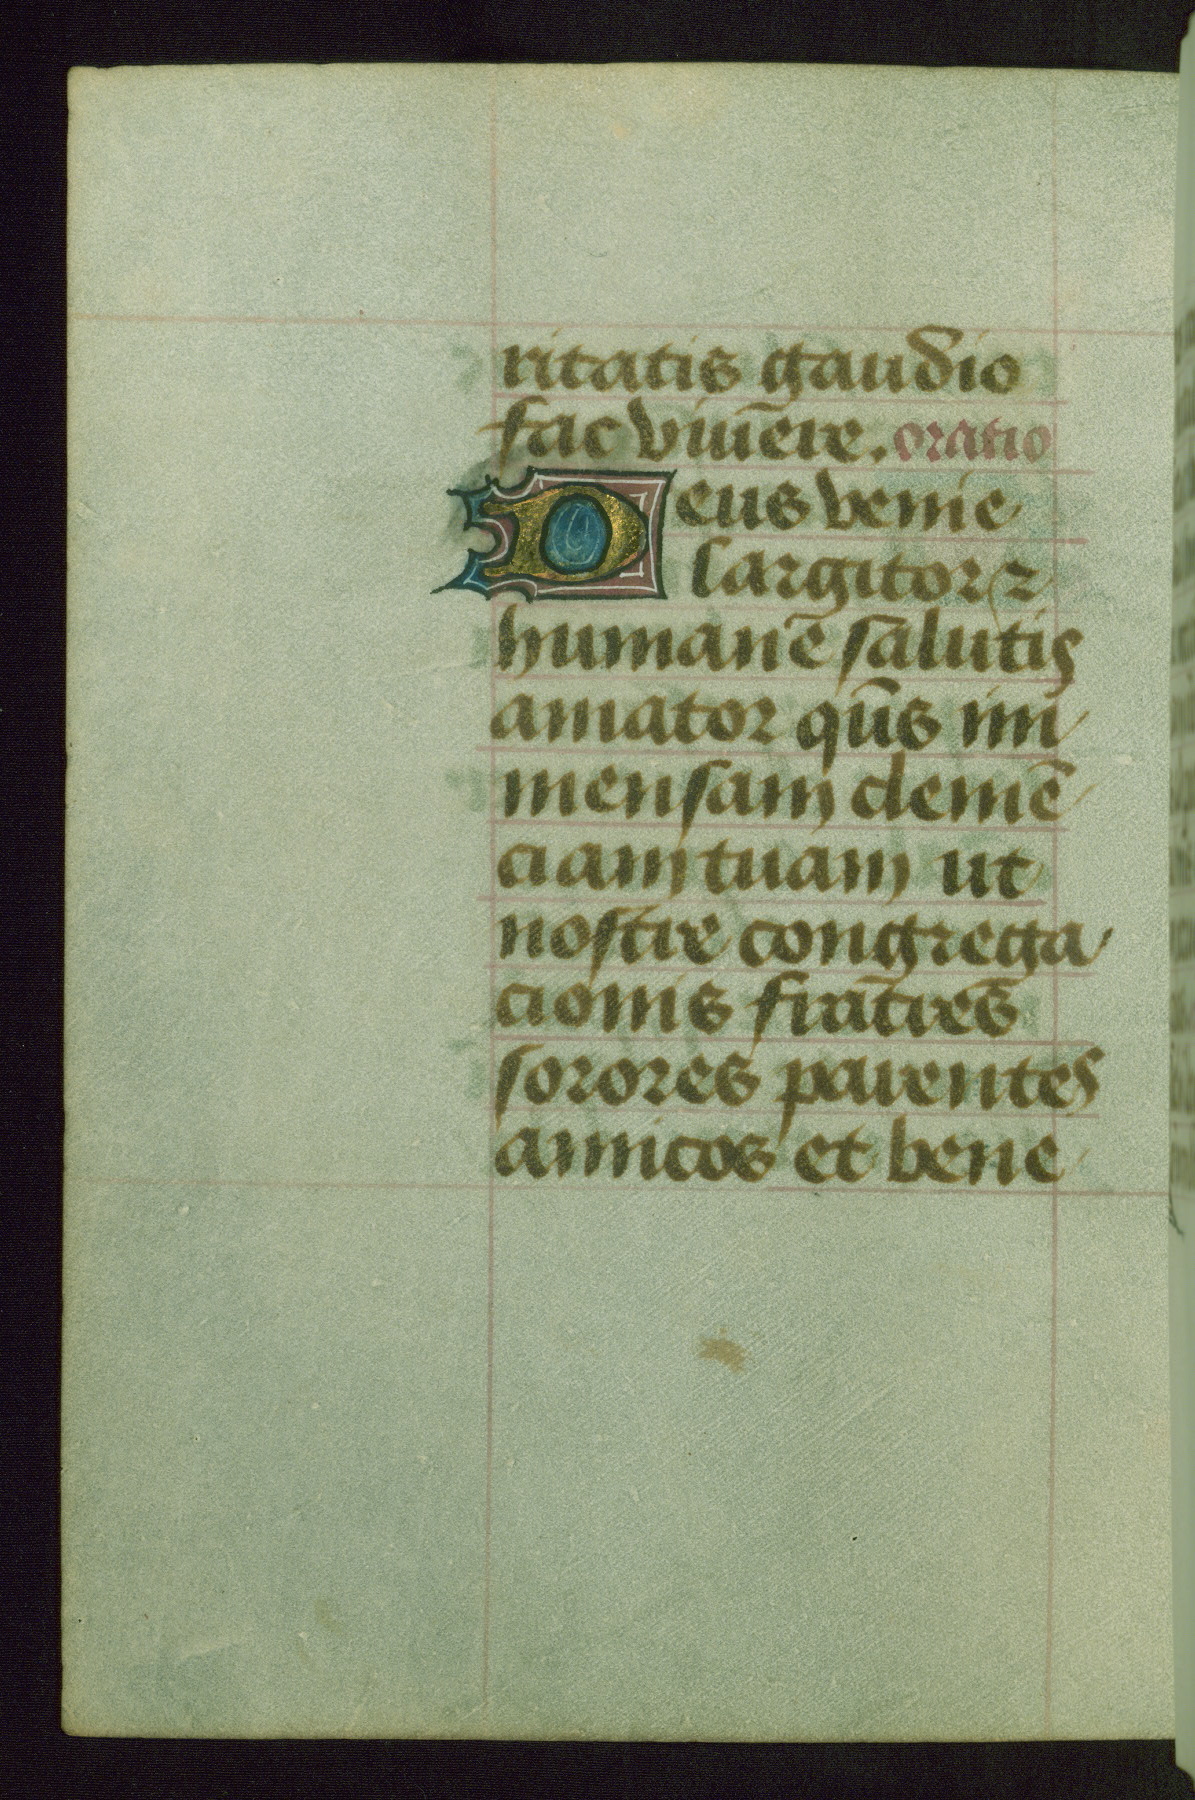 ritatis gaudio
fac viuere. oratio
Deus venie
largitor ⁊
humane salutis
amator qu̅s im
mensam cleme̅
ciam tuam ut
nostre congrega
cionis fratres
sorores parentes
amicos et bene